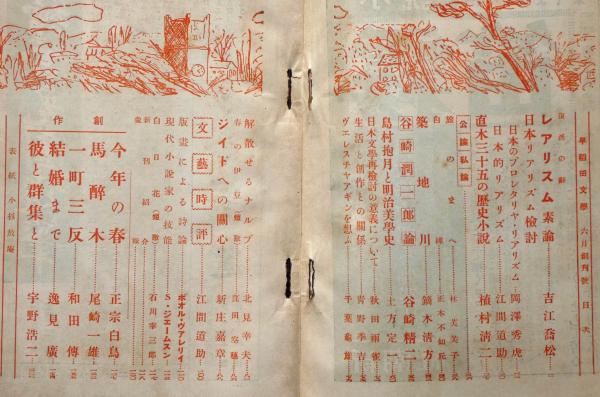 早稲田文學 六月創刊號 目次
復活の辭
レアリスム素論 吉江喬松
日本リアリズム檢討
日本のプロレタリヤ・リアリズム 岡澤秀虎
日本的リアリズム 江間道助
直木三十五の歷史小説 植村淸二
公論私論
旅のまへ 林芙美子
自 正木不如丘
築地川 鏑木淸方
谷崎潤一郎論 谷崎精二
島村抱月と明治美學史 土方定一
日本文學再檢討の意義について 秋田雨雀
生活と創作との關係 靑野季吉
ヴエレスチヤアギンを想ふ 千葉龜雄
解散せるナルプ 北見幸夫
春の伊豆
ジイドへの關心 新庄嘉章
文藝時評 江間道助
版畫による詩論 ポオル・ヴアレリイ
現代小説家の技能 S・ジェームスン
白日花 石川寧三郎
新刊紹介
創作
今年の春 正宗白鳥
馬醉木 尾崎一雄
一町三反 和田傳
結婚まで 逸見廣
彼と群集と 宇野浩二
表紙 小杉放庵